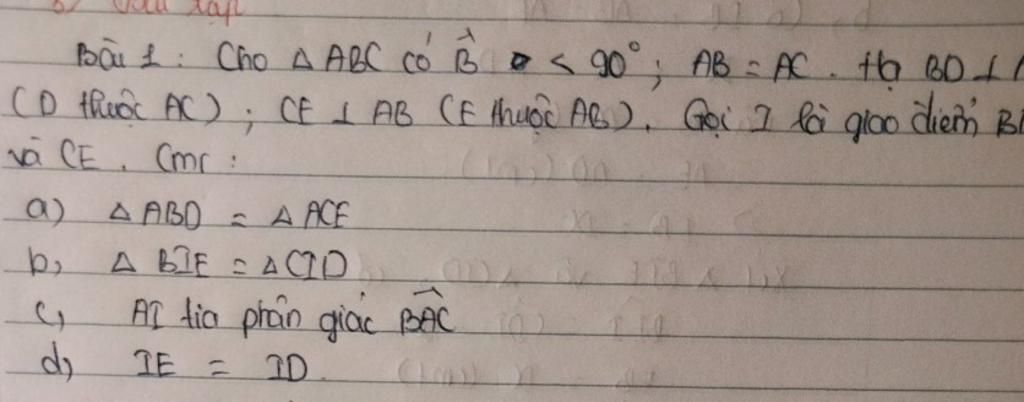 Bài 1 : Cho △ ABC có B̂ < 90° ; AB = AC . Hạ BD ⊥
(D thuộc AC) ; CE ⊥ AB (E thuộc AB). Gọi I là giao điểm
và CE. Cmr :
a) △ ABD = △ ACE
b, △ BIE = △ CID
c, AI tia phân giác BAC
d, IE = ID